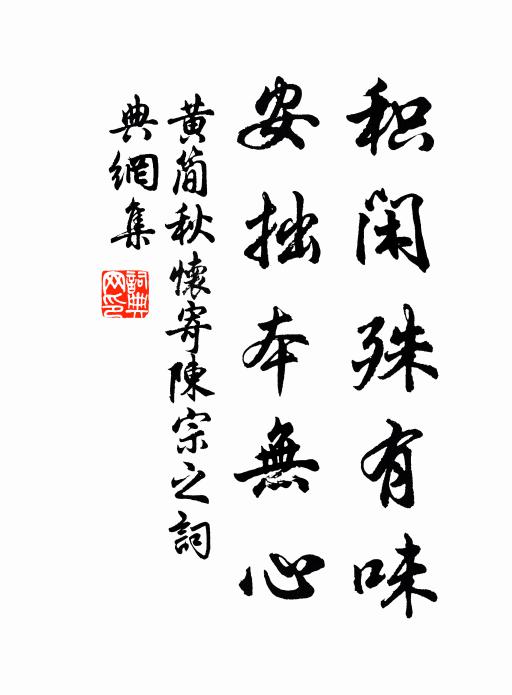 积闲殊有味
安拙本無心
黄简秋懷寄陳宗之詞
典網集
詞典网印